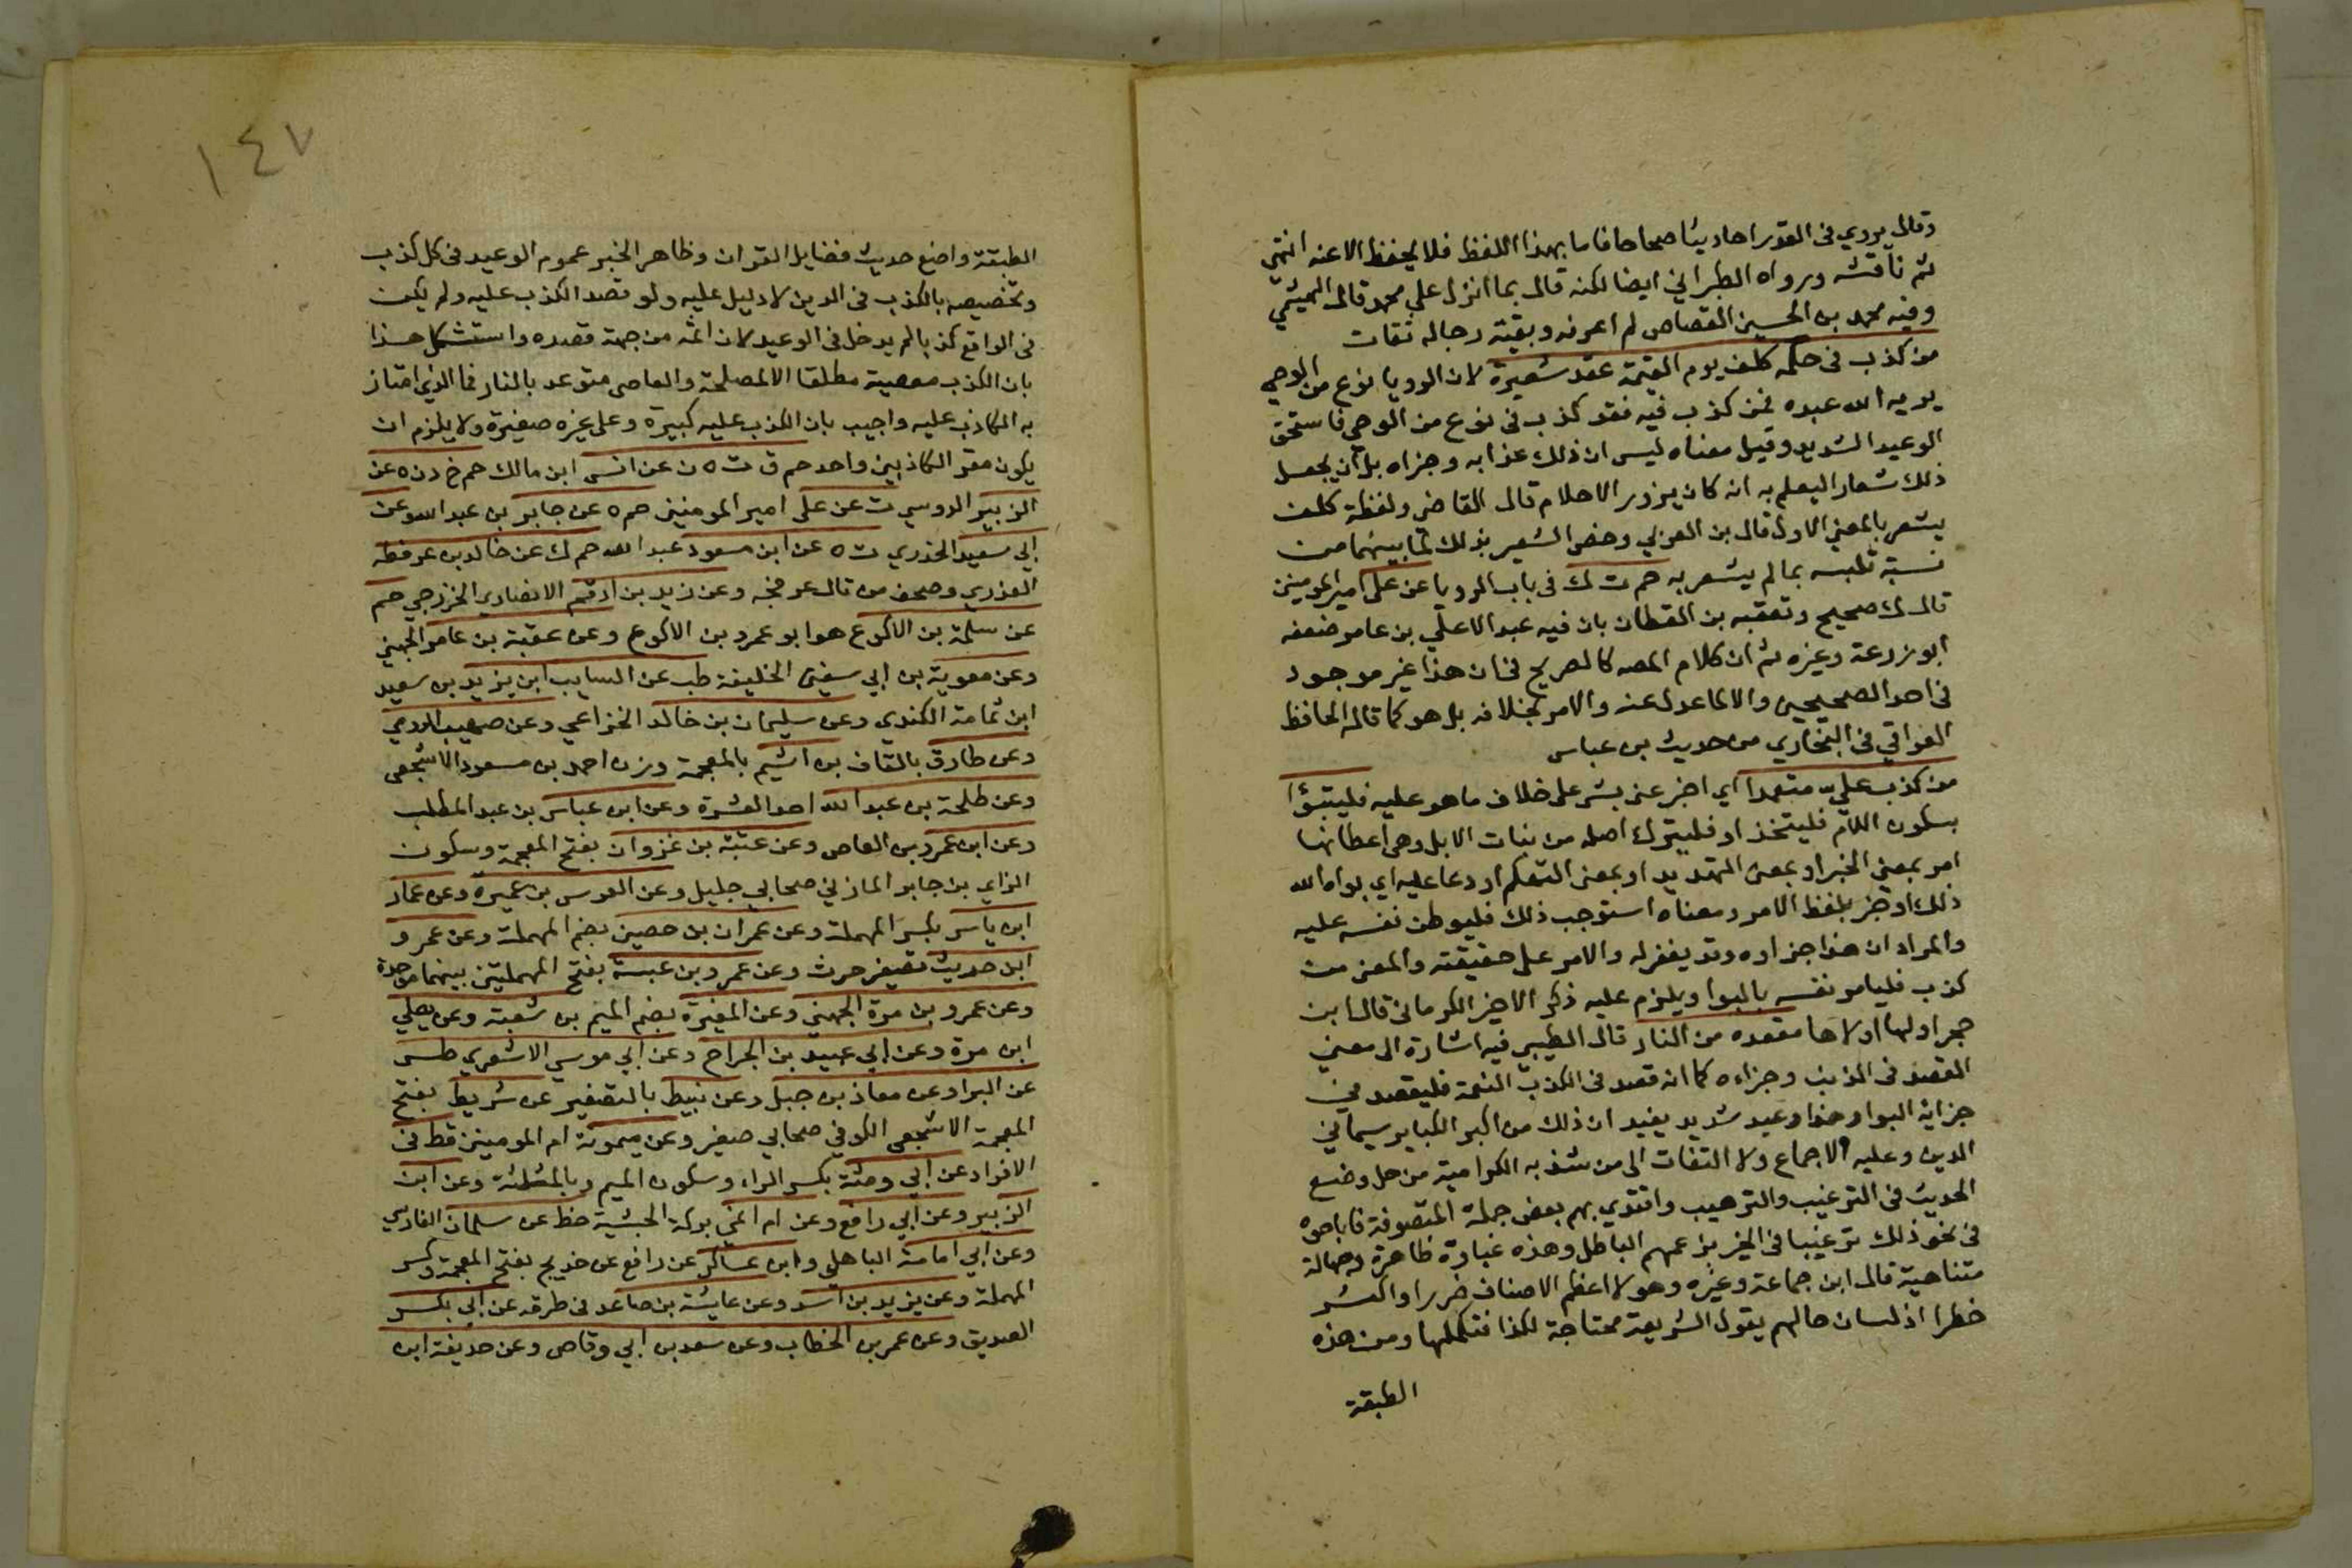 وقال يروي في القدر احاديثا صحاحا فاما بهذا اللفظ فلا يحفظ الا عنه انتهى
ثم ناقشه ورواه الطبراني ايضا لكنه قال بما انزل على محمد قال الهيثمي
وفيه محمد بن الحسين القصاص لم اعرفه وبقية رجاله ثقات
من كذب في حلمه كلف يوم القيمة عقد شعيرة لان الرويا نوع من الوحي
يريه الله عبده فمن كذب فيه فقد كذب في نوع من الوحي فاستحق
الوعيد الشديد وقيل معناه ليس ان ذلك عذابه وجزاه بل ان يجعل
ذلك شعارا ليعلم به انه كان يزور الاحلام قال القاضي ولفظة كلف
يشعر بالمعنى الاول قال بن العربي وخص الشعير بذلك لما بينهما من
نسبة تلبسه بما لم يشعر به حم ت ك في باب الرويا عن علي امير المومنين
قال ك صحيح وتعقبه بن القطان بان فيه عبد الاعلى بن عامر ضعفه
ابو زرعة وغيره ثم ان كلام المصه كالصريح في ان هذا غير موجود
في احد الصحيحين والا لما عدل عنه والامر بخلافه بل هو كما قاله الحافظ
العراقي في البخاري من حديث بن عباس
من كذب علي متعمدا اي اخبر عني بشي على خلاف ما هو عليه فليتبوا
بسكون اللام فليتخذ او فليترك اصله من بنات الابل وهي اعطانها
امر بمعنى الخبر او بمعنى التهديد او بمعنى التهكم او دعا عليه اي بواه الله
ذلك او خبر بلفظ الامر ومعناه استوجب ذلك فليوطن نفسه عليه
والمراد ان هذا جزاوه وقد يغفر له والامر على حقيقته والمعنى من
كذب فليامر نفسه بالبوا ويلزم عليه ذكر الاخير الكرماني قال ابن
حجر اولها اولاها مقعده من النار قال الطيبي فيه اشارة الى معنى
القصد في الذنب وجزاءه كما انه قصد في الكذب التعمد فليقصد في
جزايه البوا وهذا وعيد شديد يفيد ان ذلك من اكبر الكباير سيما في
الدين وعليه الاجماع ولا التفات الى من شذ به الكرامية من حل وضع
الحديث في الترغيب والترهيب واقتدي بهم بعض جملة المتصوفة فاباحوه
في نحو ذلك ترغيبا في الخير بزعمهم الباطل وهذه غباوة ظاهرة وجهالة
متناهية قال ابن جماعة وغيره وهولا اعظم الاصناف ضررا واكثر
خطرا اذ لسان حالهم يقول الشريعة محتاجة لكذا فنكملها ومن هذه
الطبقة
١٤٧
الطبقة واضع حديث فضايل القران وظاهر الخبر عموم الوعيد في كل كذب
وتخصيصه بالكذب في الدين لا دليل عليه ولو قصد الكذب عليه ولم يكن
في الواقع كذبا لم يدخل في الوعيد لان اثمه من جهة قصده واستشكل هذا
بان الكذب معصية مطلقا الا لمصلحة والعاصي متوعد بالنار فما الذي امتاز
به الكاذب عليه واجيب بان الكذب عليه كبيرة وعلى غيره صغيرة ولا يلزم ان
يكون مقر الكاذبين واحد حم ق ت ه ن عن انس ابن مالك حم خ د ن ه عن
الزبير الدوسي ت عن علي امير المومنين حم ه عن جابر بن عبد الله وعن
ابي سعيد الخدري ت ه عن ابن مسعود عبد الله حم ك عن خالد بن عرفطة
العذري وصحف من قال عرفجه وعن زيد بن ارقم الانصاري الخزرجي حم
عن سلمة بن الاكوع هو ابو عمرو بن الاكوع وعن عقبة بن عامر الجهني
وعن معوية بن ابي سفين الخليفة طب عن السايب ابن يزيد بن سعيد
ابن ثمامة الكندي وعن سليمان بن خالد الخزاعي وعن صهيب الرومي
وعن طارق بالقاف بن اشيم بالمعجمة وزن احمد بن مسعود الاشجعي
وعن طلحة بن عبد الله احد العشرة وعن ابن عباس بن عبد المطلب
وعن ابن عمرو بن العاص وعن عتبة بن غزوان بفتح المعجمة وسكون
الزاي بن جابر المازني صحابي جليل وعن العرس بن عميرة وعن عمار
ابن ياسر بكسر المهملة وعن عمران بن حصين بضم المهملة وعن عمرو
ابن حديث تصغير حرث وعن عمرو بن عبسة بفتح المهملتين بينهما موحدة
وعن عمرو بن مرة الجهني وعن المغيرة بضم الميم بن شعبة وعن يعلي
ابن مرة وعن ابي عبيد بن الجراح وعن ابي موسي الاشعري طس
عن البرا وعن معاذ بن جبل وعن نبيط بالتصغير عن شريط بفتح
المعجمة الاشجعي الكوفي صحابي صغير وعن ميمونة ام المومنين قط في
الافراد عن ابي رمثة بكسر الراء وسكون الميم وبالمثلثة وعن ابن
الزبير وعن ابي رافع وعن ام ايمن بركة الحبشية خط عن سلمان الفارسي
وعن ابي امامة الباهلي وابن عساكر عن رافع عن خديج بفتح المعجمة وكسر
المهملة وعن يزيد بن اسد وعن عايشة بن صاعد في طرقه عن ابي بكر
الصديق وعن عمر بن الخطاب وعن سعد بن ابي وقاص وعن حذيفة ابن